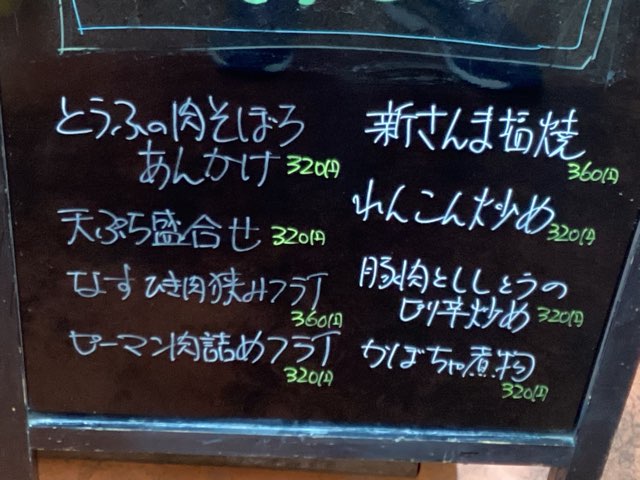 とうふの肉そぼろ
あんかけ 320円
天ぷら盛合せ 320円
なすひき肉狭みフライ
360円
ピーマン肉詰めフライ
320円
新さんま塩焼
360円
れんこん炒め
320円
豚肉とししとうの
ピリ辛炒め 320円
かぼちゃ煮物
320円